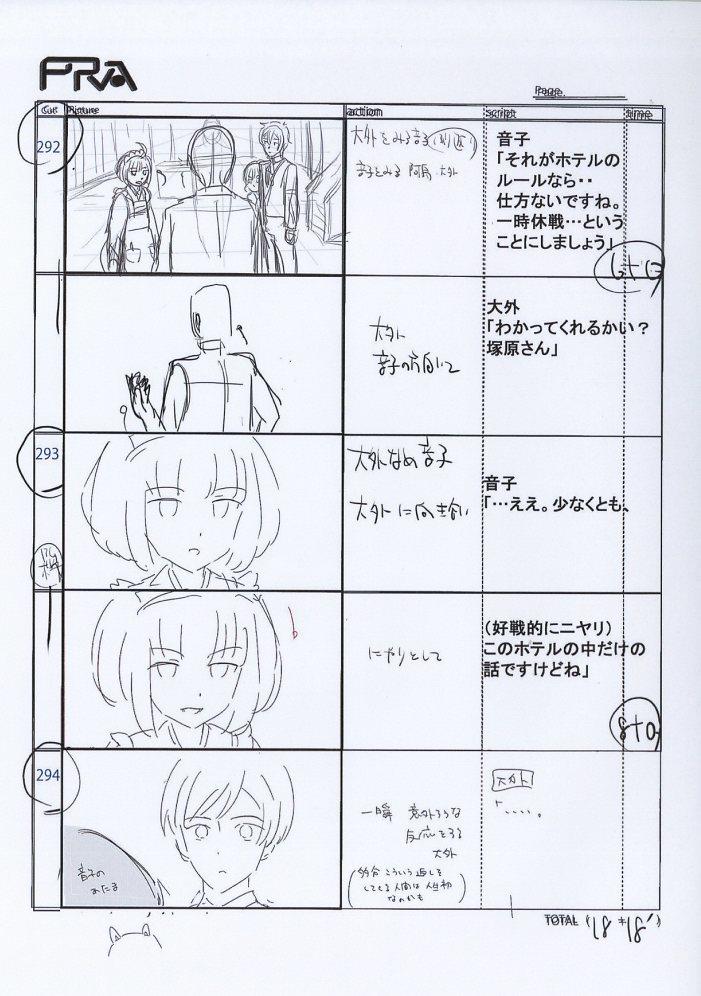 PRA
Page
Cut Picture action script time
292
大外をみる音子
音子をみる 阿鳥 大外
音子
「それがホテルの
ルールなら‥
仕方ないですね。
一時休戦…という
ことにしましょう」
6+0
大外
音子の方向いて
大外
「わかってくれるかい？
塚原さん」
293
大外なめ音子
大外に向き合い
音子
「…ええ。少なくとも、
にやりとして
(好戦的にニヤリ)
このホテルの中だけの
話ですけどね」
8+0
294
音子の
あたま
一瞬 意外そうな
反応をする
大外
(多分こういう返しを
してくる人間は人生初
なのかも)
大外
「‥‥。
TOTAL (18 + 18')